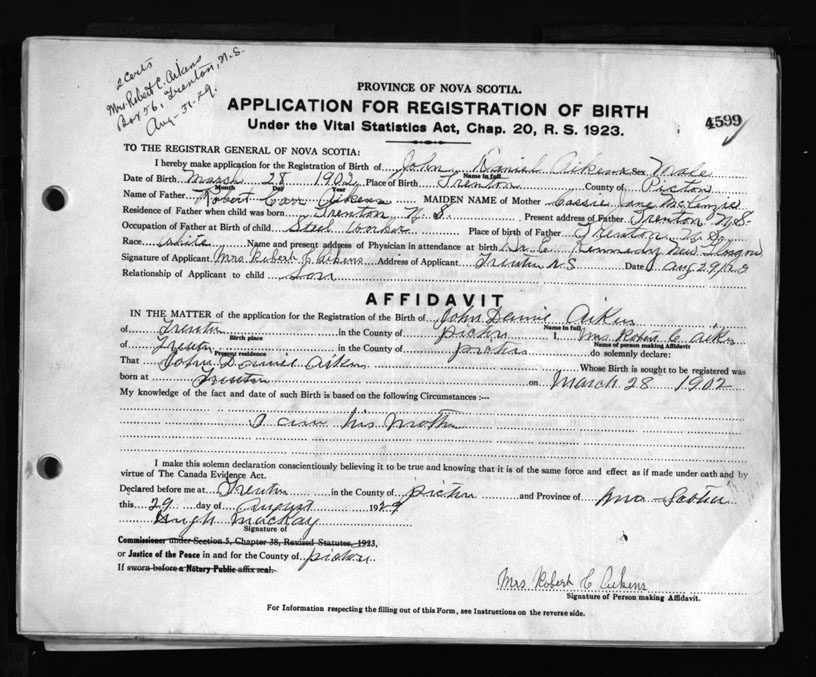 2 Certs
Mrs. Robert C. Aikens
Box 56, Trenton, N.S.
Aug-31-29.
PROVINCE OF NOVA SCOTIA.
APPLICATION FOR REGISTRATION OF BIRTH
Under the Vital Statistics Act, Chap. 20, R. S. 1923.
4599
TO THE REGISTRAR GENERAL OF NOVA SCOTIA:
I hereby make application for the Registration of Birth of John Daniel Aikens Sex Male
Name in full
Date of Birth March 28 1902 Place of Birth Trenton County of Pictou
Month Day Year
Name of Father Robert Carr Aikens MAIDEN NAME of Mother Cassie Jane MacKenzie
Residence of Father when child was born Trenton N.S. Present address of Father Trenton N.S.
Occupation of Father at Birth of child Steel Worker Place of birth of Father Trenton N.S.
Race White Name and present address of Physician in attendance at birth Dr. E. Kennedy New Glasgow
Signature of Applicant Mrs Robert C Aikens Address of Applicant Trenton N.S Date Aug 29
Relationship of Applicant to child Son
AFFIDAVIT
IN THE MATTER of the application for the Registration of the Birth of John Daniel Aikens
Name in full
of Trenton in the County of Pictou I, Mrs Robert C Aikens
Birth place Name of person making Affidavit
of Trenton in the County of Pictou do solemnly declare:
Present residence
That John Daniel Aikens Whose Birth is sought to be registered was
born at Trenton on March 28 1902
My knowledge of the fact and date of such Birth is based on the following Circumstances :—
I am his Mother
I make this solemn declaration conscientiously believing it to be true and knowing that it is of the same force and effect as if made under oath and by
virtue of The Canada Evidence Act.
Declared before me at Trenton in the County of Pictou and Province of Nova Scotia
this 29 day of August 1929
Hugh MacKay
Signature of
Commissioner under Section 5, Chapter 38, Revised Statutes, 1923,
or Justice of the Peace in and for the County of Pictou
If sworn before a Notary Public affix seal.
Mrs Robert C Aikens
Signature of Person making Affidavit.
For Information respecting the filling out of this Form, see Instructions on the reverse side.